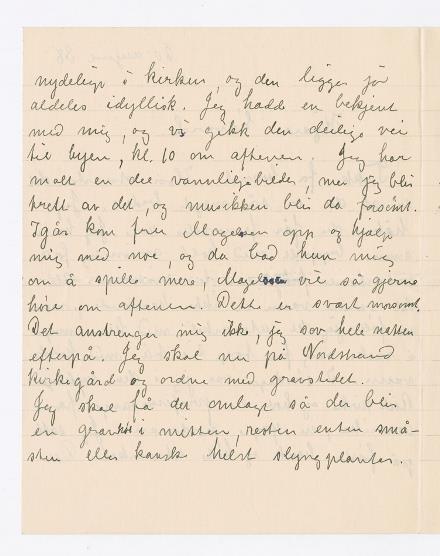 nydelige i kirken, og den ligger jo
aldeles idyllisk. Jeg hadde en bekjent
med mig, og vi gikk den deilige vei
til byen, kl. 10 om aftenen. Jeg har
malt en del vannliljebilder, men jeg blir
trett av det, og musikken blir da forsømt.
Igår kom fru Magelssen opp og hjalp
mig med noe, og da bad hun mig
om å spille mere, Magelssen vil så gjerne
høre om aftenen. Dette er svært morsomt.
Det anstrenger mig ikke, jeg sov hele natten
efterpå. Jeg skal nu på Nordstrand
kirkegård og ordne med gravstedet.
Jeg skal få det omlagt så der blir
en grav i mitten, resten enten små-
sten eller kanske helst slyngplanter.